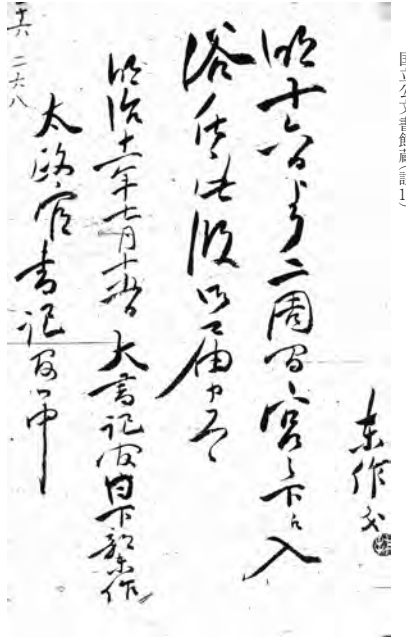 国立公文書館蔵(註1)
東作
明十六日より二周間宮之下へ入
浴仕候此段御届申候
明治十一年七月十五日 大書記官日下部東作
太政官書記官御中
十六 二六八